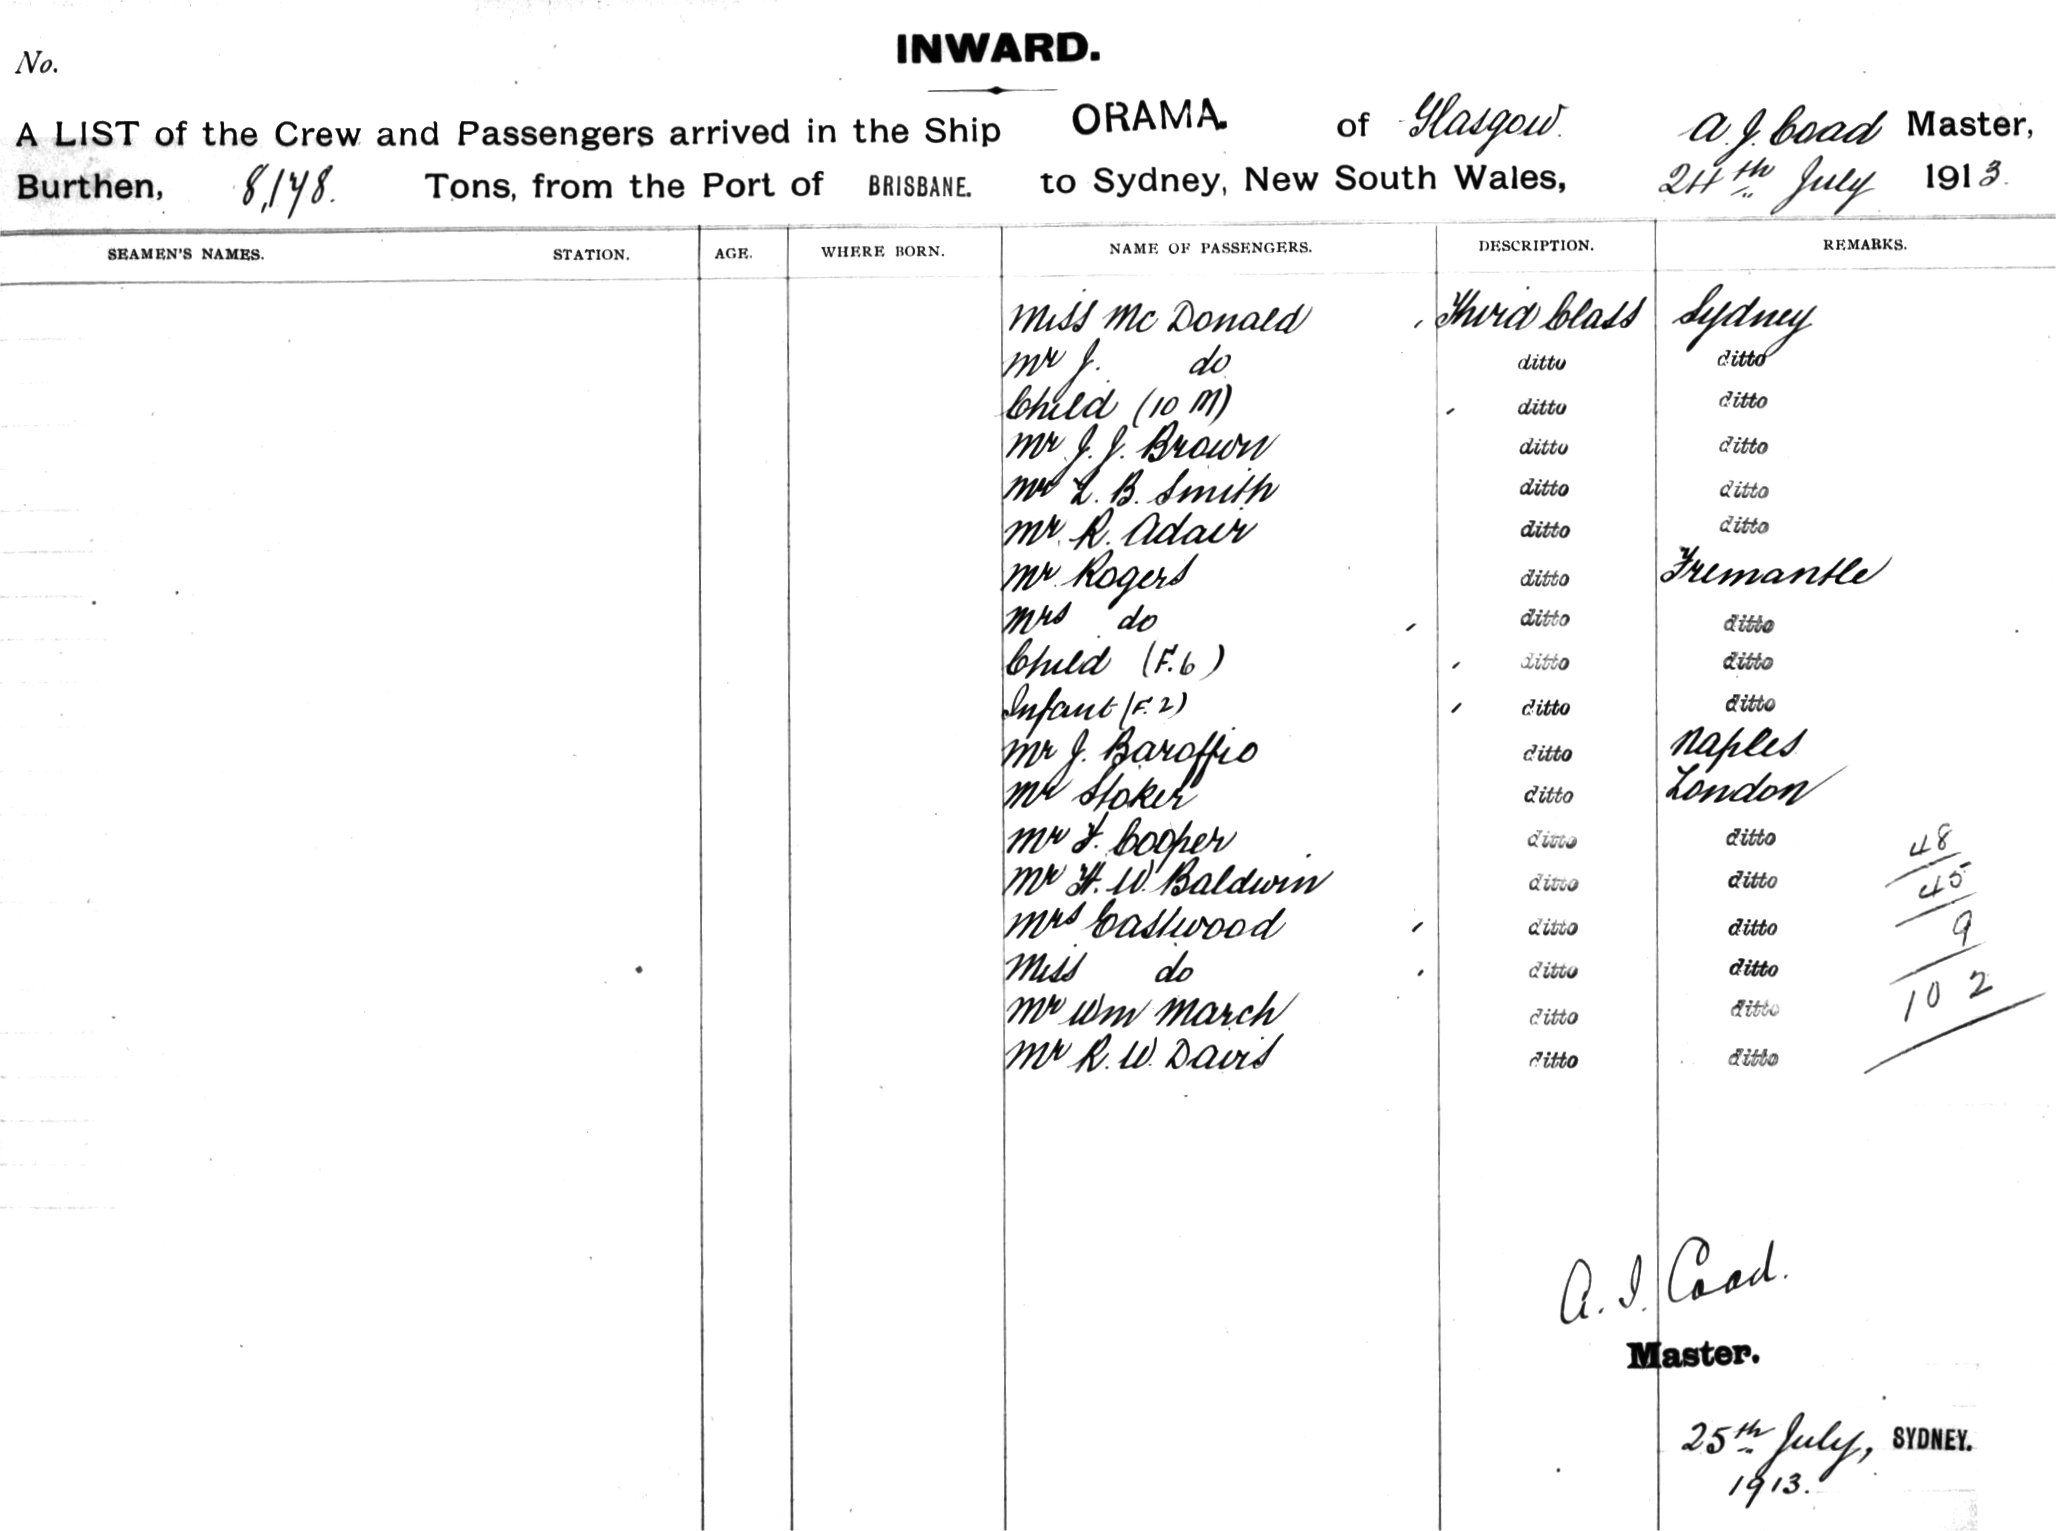 No.
INWARD.
A LIST of the Crew and Passengers arrived in the Ship ORAMA. of Glasgow. A. J. Coad Master,
Burthen, 8,178. Tons, from the Port of BRISBANE. to Sydney, New South Wales, 24th July 1913.
SEAMEN'S NAMES. STATION. AGE. WHERE BORN. NAME OF PASSENGERS. DESCRIPTION. REMARKS.
Miss Mc Donald Third Class Sydney
Mr J. do ditto ditto
Child (10 M) ditto ditto
Mr J. J. Brown ditto ditto
Mr L. B. Smith ditto ditto
Mr R. Adair ditto ditto
Mr Rogers ditto Fremantle
Mrs do ditto ditto
Child (F. 6) ditto ditto
Infant (F. 2) ditto ditto
Mr J. Baroffio ditto Naples
Mr Stoker ditto London
Mr F. Cooper ditto ditto 48
Mr H. W. Baldwin ditto ditto 45
Mrs Eastwood ditto ditto 9
Miss do ditto ditto
Mr Wm March ditto ditto 102
Mr R. W. Davis ditto ditto
A. J. Coad.
Master.
25th July, SYDNEY.
1913.